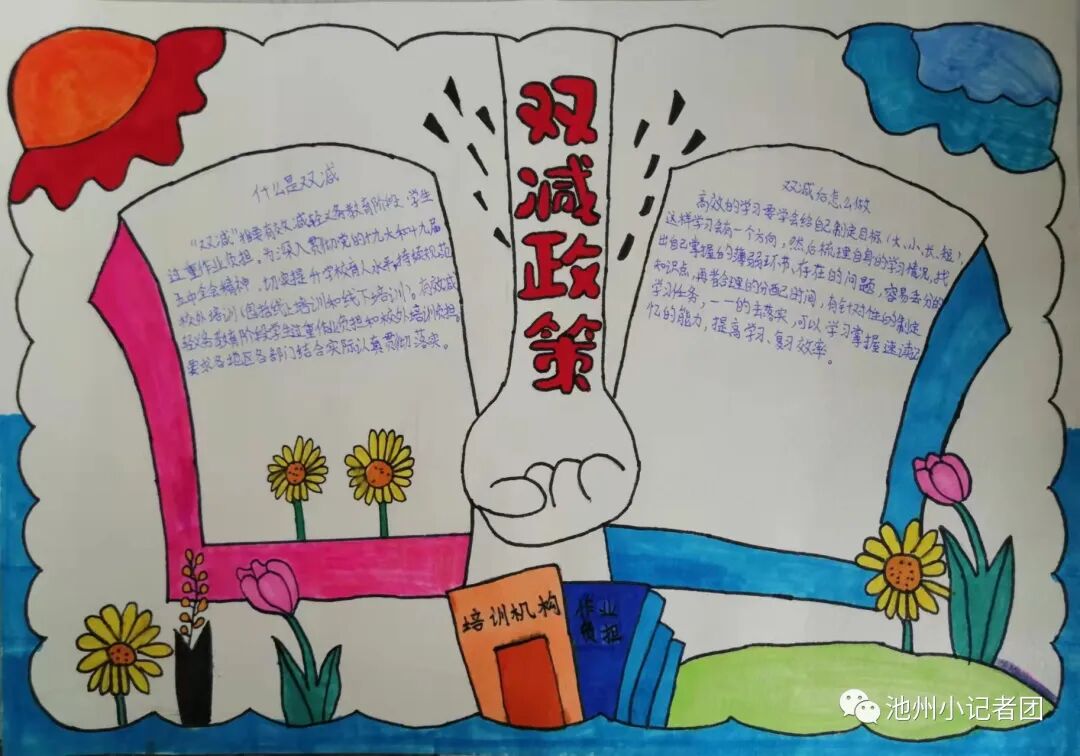 双减政策
什么是双减
“双减”指要有效减轻义务教育阶段学生
过重作业负担。为深入贯彻党的十九大和十九届
五中全会精神，切实提升学校育人水平，持续规范
校外培训（包括线上培训和线下培训）。有效减
轻义务教育阶段学生过重作业负担和校外培训负担。
要求各地区各部门结合实际认真贯彻落实。
双减后怎么做
高效的学习要学会给自己制定目标（大、小、长、短），
这样学习会有一个方向，然后梳理自身的学习情况，找
出自己掌握的薄弱环节、存在的问题，容易丢分的
知识点，再者合理的分配时间，有针对性的制定
学习任务，一一的去落实，可以学习掌握速读记
忆的能力，提高学习、复习效率。
培训机构
作业
负担
池州小记者团